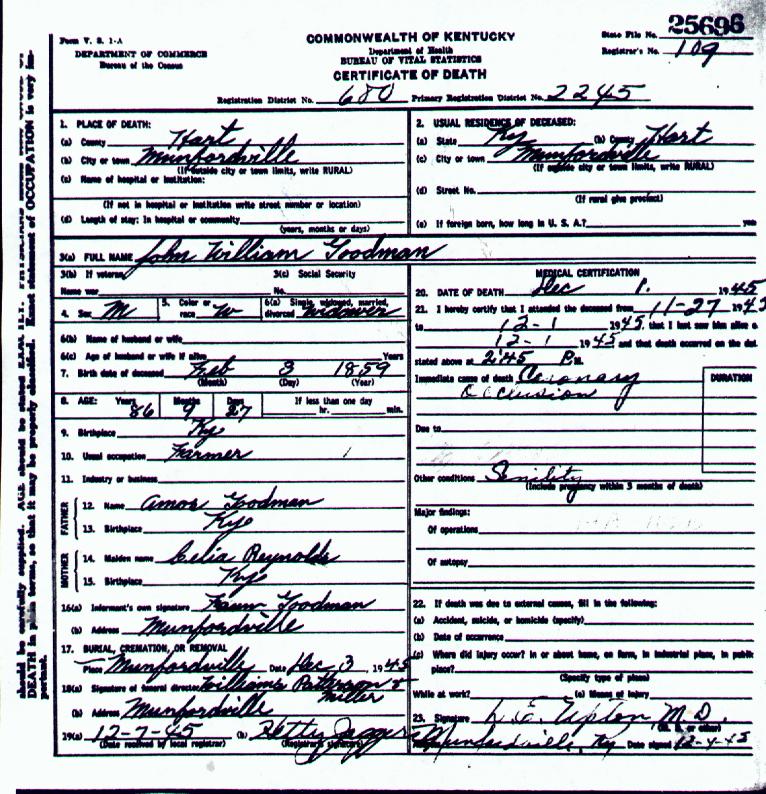 25696
Form V. S. 1-A
COMMONWEALTH OF KENTUCKY
State File No.
DEPARTMENT OF COMMERCE
Department of Health
Registrar's No. 109
Bureau of the Census
BUREAU OF VITAL STATISTICS
CERTIFICATE OF DEATH
Registration District No. 680 Primary Registration District No. 2245
should be carefully supplied. AGE should be stated EXACTLY. PHYSICIANS
DEATH in plain terms, so that it may be properly classified. Exact statement of OCCUPATION is very im-
portant.
1. PLACE OF DEATH:
(a) County Hart
(b) City or town Munfordville
(If outside city or town limits, write RURAL)
(c) Name of hospital or institution:
(If not in hospital or institution write street number or location)
(d) Length of stay: In hospital or community
(years, months or days)
2. USUAL RESIDENCE OF DECEASED:
(a) State Ky (b) County Hart
(c) City or town Munfordville
(If outside city or town limits, write RURAL)
(d) Street No.
(If rural give precinct)
(e) If foreign born, how long in U. S. A.? yea
3(a) FULL NAME John William Goodman
3(b) If veteran, 3(c) Social Security
Name war No.
4. Sex M 5. Color or race W 6(a) Single, widowed, married, divorced Widower
6(b) Name of husband or wife
6(c) Age of husband or wife if alive Years
7. Birth date of deceased Feb 3 1859
(Month) (Day) (Year)
8. AGE: Years 86 Months 9 Days 27 If less than one day
hr. min.
9. Birthplace Ky
10. Usual occupation Farmer
11. Industry or business
FATHER
12. Name Amos Goodman
13. Birthplace Ky
MOTHER
14. Maiden name Celia Reynolds
15. Birthplace Ky
16(a) Informant's own signature Goodman
(b) Address Munfordville
17. BURIAL, CREMATION, OR REMOVAL
Place Munfordville Date Dec 3 1945
18(a) Signature of funeral director Williams Patterson &
Miller
(b) Address Munfordville
19(a) 12-7-45 (b) Hetty Jaggers
(Date received by local registrar) (Registrar's signature)
MEDICAL CERTIFICATION
20. DATE OF DEATH Dec 1. 1945
21. I hereby certify that I attended the deceased from 11-27 1945
to 12-1 1945, that I last saw him alive o
12-1 1945 and that death occurred on the dat
stated above at 2:45 P.M.
Immediate cause of death Coronary
Occlusion
DURATION
Due to
Other conditions Senility
(Include pregnancy within 3 months of death)
Major findings:
Of operations
Of autopsy
22. If death was due to external causes, fill in the following:
(a) Accident, suicide, or homicide (specify)
(b) Date of occurrence
(c) Where did injury occur? In or about home, on farm, in industrial place, in public
place?
(Specify type of place)
While at work? (e) Means of injury
23. Signature L. E. Upton M D.
(M. D. or other)
Munfordville, Ky Date signed 12-4-45